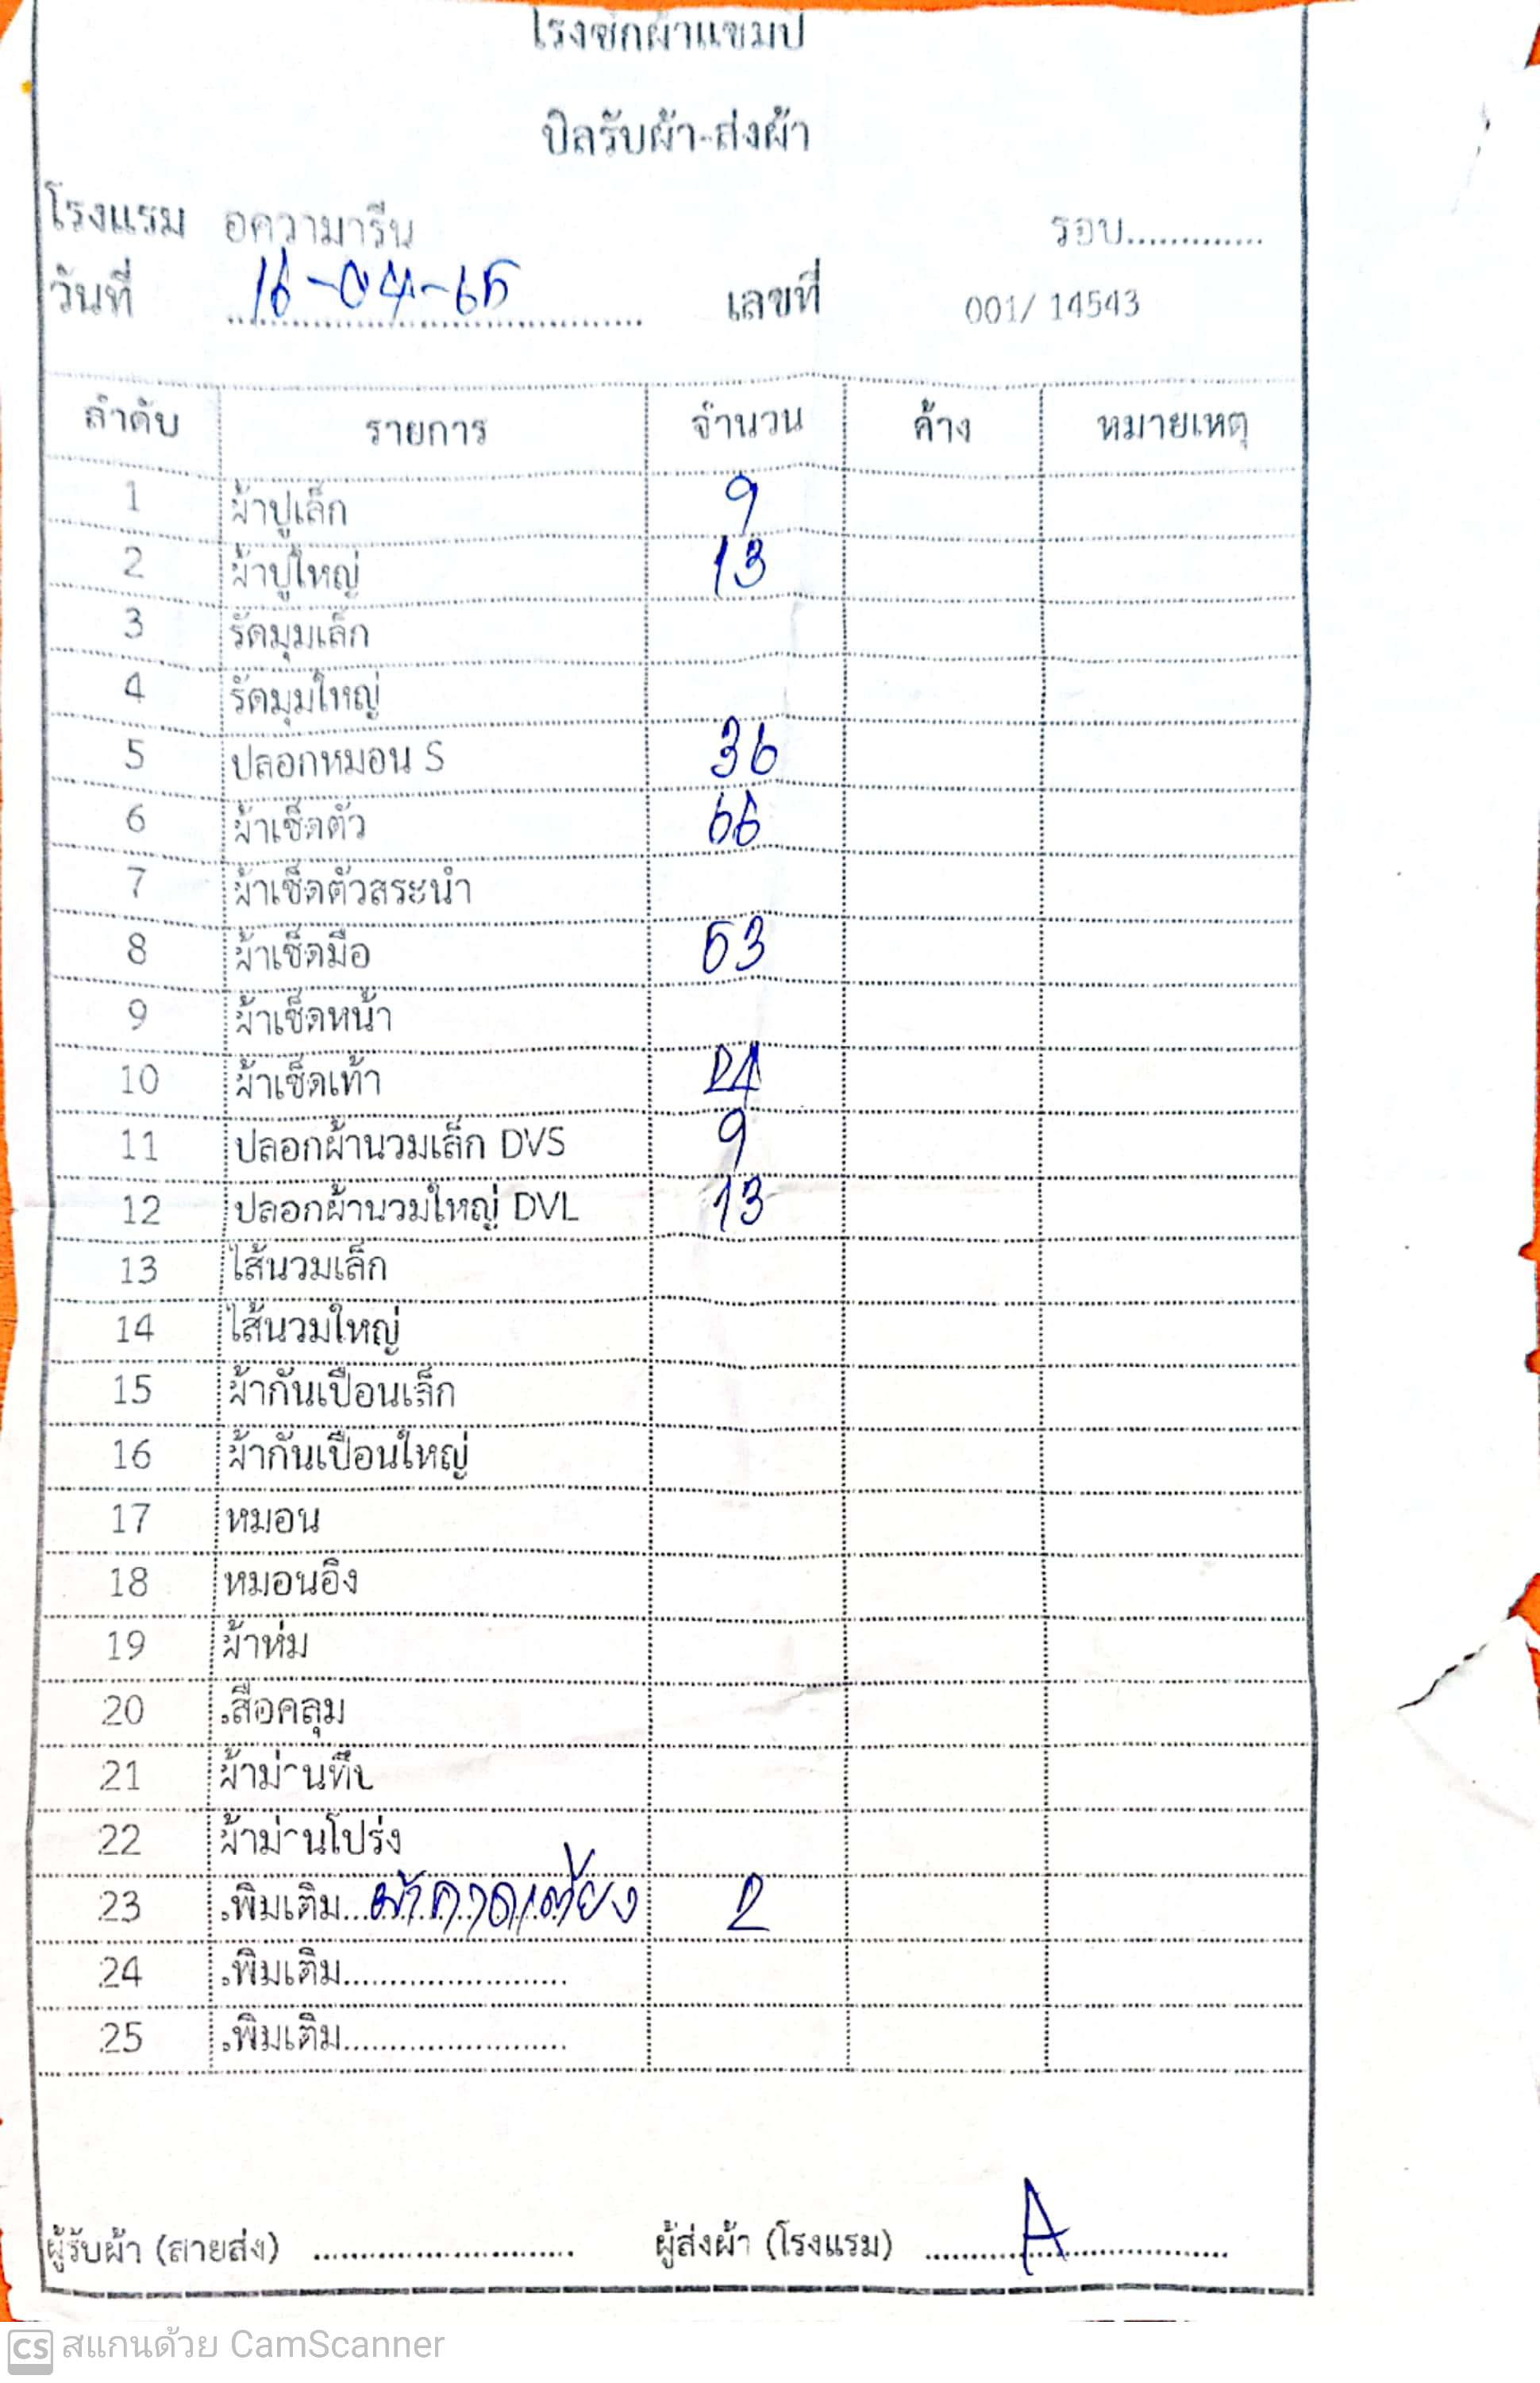 โรงซักผ้าแชมป์
บิลรับผ้า-ส่งผ้า
โรงแรม อความารีน รอบ.............
วันที่ 16-04-65 เลขที่ 001/ 14543
ลำดับ รายการ จำนวน ค้าง หมายเหตุ
1 ผ้าปูเล็ก 9
2 ผ้าปูใหญ่ 13
3 รัดมุมเล็ก
4 รัดมุมใหญ่
5 ปลอกหมอน S 36
6 ผ้าเช็ดตัว 66
7 ผ้าเช็ดตัวสระน้ำ
8 ผ้าเช็ดมือ 53
9 ผ้าเช็ดหน้า
10 ผ้าเช็ดเท้า 24
11 ปลอกผ้านวมเล็ก DVS 9
12 ปลอกผ้านวมใหญ่ DVL 13
13 ไส้นวมเล็ก
14 ไส้นวมใหญ่
15 ผ้ากันเปื้อนเล็ก
16 ผ้ากันเปื้อนใหญ่
17 หมอน
18 หมอนอิง
19 ผ้าห่ม
20 เสื้อคลุม
21 ผ้าม่านทึบ
22 ผ้าม่านโปร่ง
23 เพิ่มเติม...ผ้าคาดเตียง 2
24 เพิ่มเติม.......................
25 เพิ่มเติม.......................
ผู้รับผ้า (สายส่ง) .......................... ผู้ส่งผ้า (โรงแรม) A
CS สแกนด้วย CamScanner